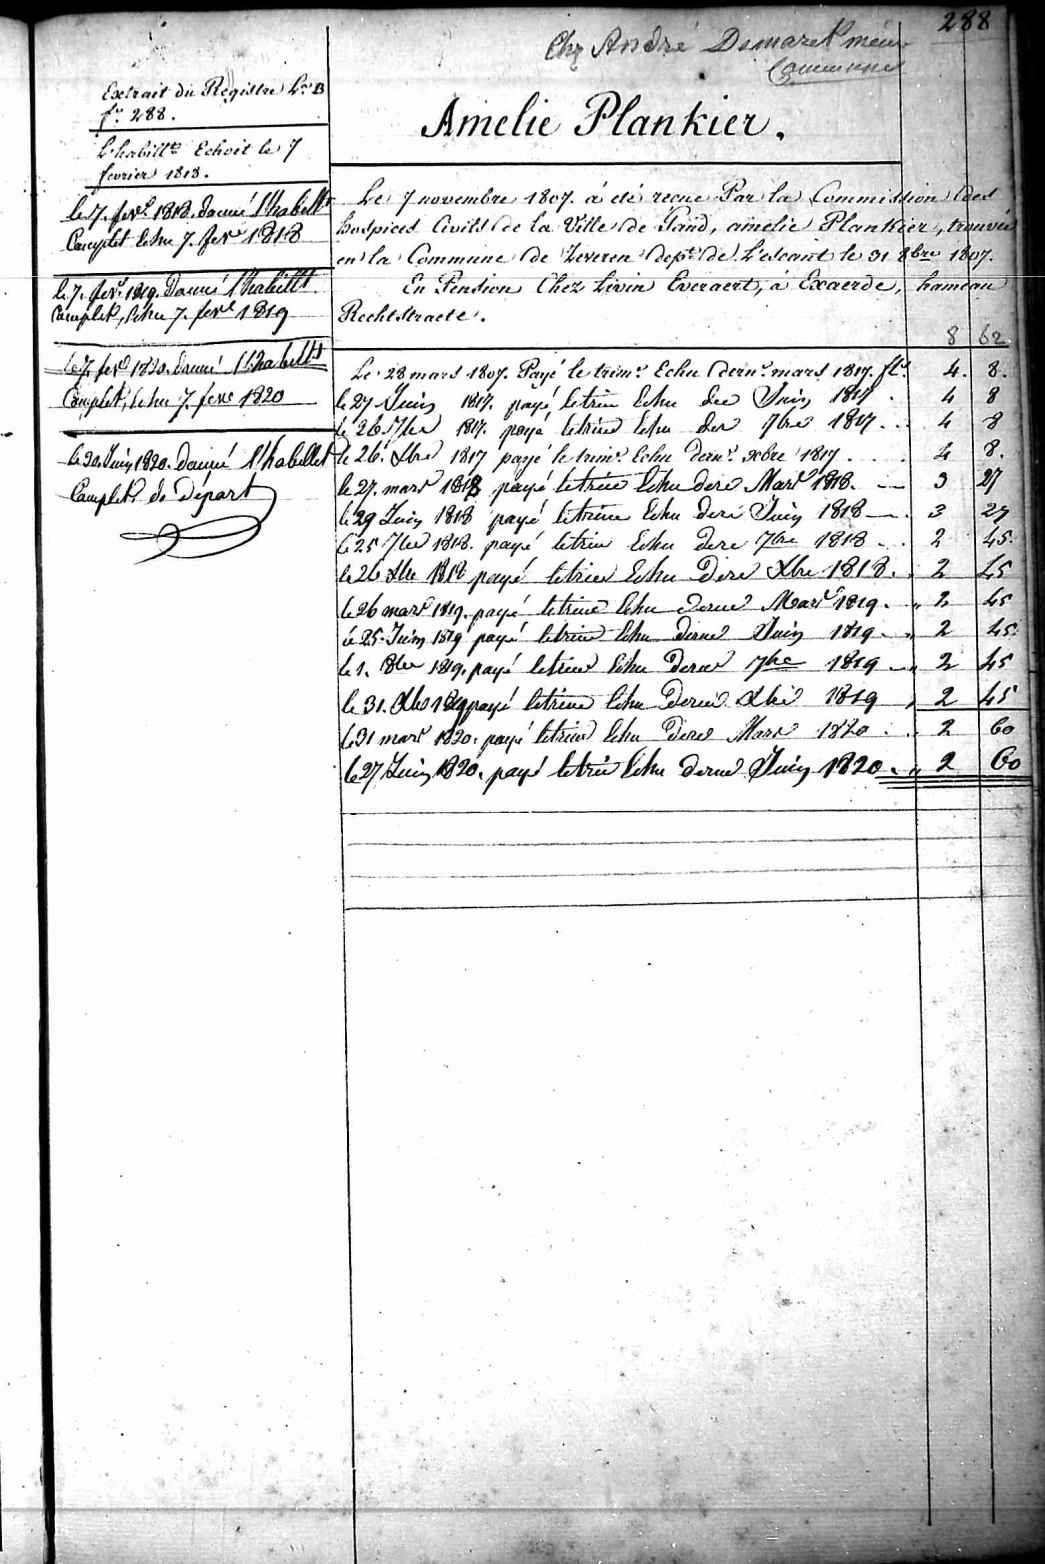 288
Chez André Demaret même
Commune
Extrait du Registre Lre B
fo 288.
L'habillte Echoit le 7
fevrier 1818.
le 7. fevr. 1818. donné l'habillt
Complet Echu 7. fevr 1818
le 7. fevr. 1819. Donné l'habillt.
Complet, Echu 7. fevr 1819
le 7. fevr 1820. Donné l'habillt
Complet, Echu 7. fevr 1820
le 30. Juin 1820. Donné l'habillet
Complet de Départ
Amelie Plankier.
Le 7 novembre 1807. à été reçue Par la Commission des
hospices Civils de la Ville de Gand, amelie Plankier, trouvée
en la Commune de Zeveren dept. de L'escaut le 31 8bre 1807.
En Pension Chez Livin Everaert, à Exaerde, hameau
Rechtstraete.
8 62
Le 28 mars 1807. Payé le trimre Echu dernr mars 1817. fls. 4. 8.
le 27 Juin 1817. payé le trim Echu der Juin 1817 . 4 8
le 26 7bre 1817. payé le trim Echu der 7bre 1817 . . . 4 8
le 26 Xbre 1817 payé le trimr. Echu dernr. xbre 1817 . . . . 4 8.
le 27. mars 1818 payé le trim Echu dere Mars 1818. — 3 27
le 29 Juin 1818 payé le trim Echu dere Juin 1818 — . 3 27
le 25 7bre 1818. payé le trim Echu dere 7bre 1818 . . 2 45.
le 26 Xbre 1818 payé le trim Echu dere Xbre 1818. . 2 45
le 26 mars 1819. payé le trim Echu derne Mars 1819. " 2 45
le 25. Juin 1819 payé le trim Echu derne Juin 1819 . " 2 45.
le 1. 8bre 1819. payé le trim Echu derne 7bre 1819 — " 2 45
le 31. Xbre 1819 payé le trim Echu derne Xbre 1819 " 2 45
le 31 mars 1820. payé le trim Echu dere Mars 1820 . " 2 60
le 27 Juin 1820. payé le trim Echu derne Juin 1820 . " 2 60